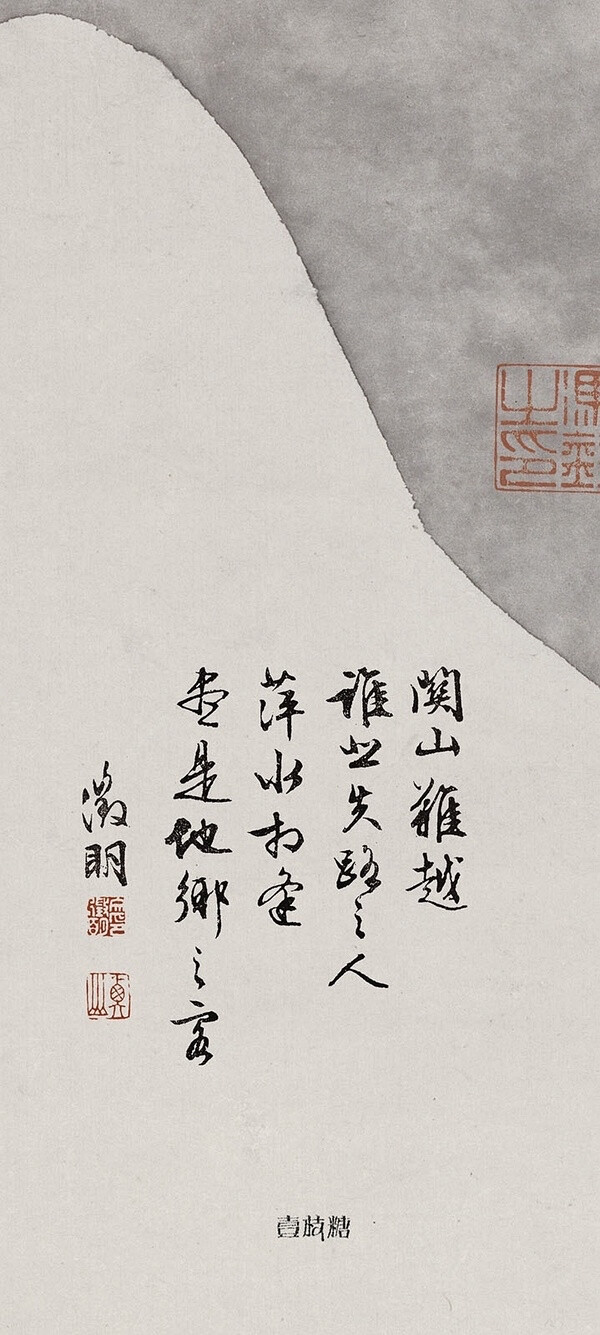 馮銓之印
關山難越
誰悲失路之人
萍水相逢
盡是他鄉之客
徵明
壹枝糖